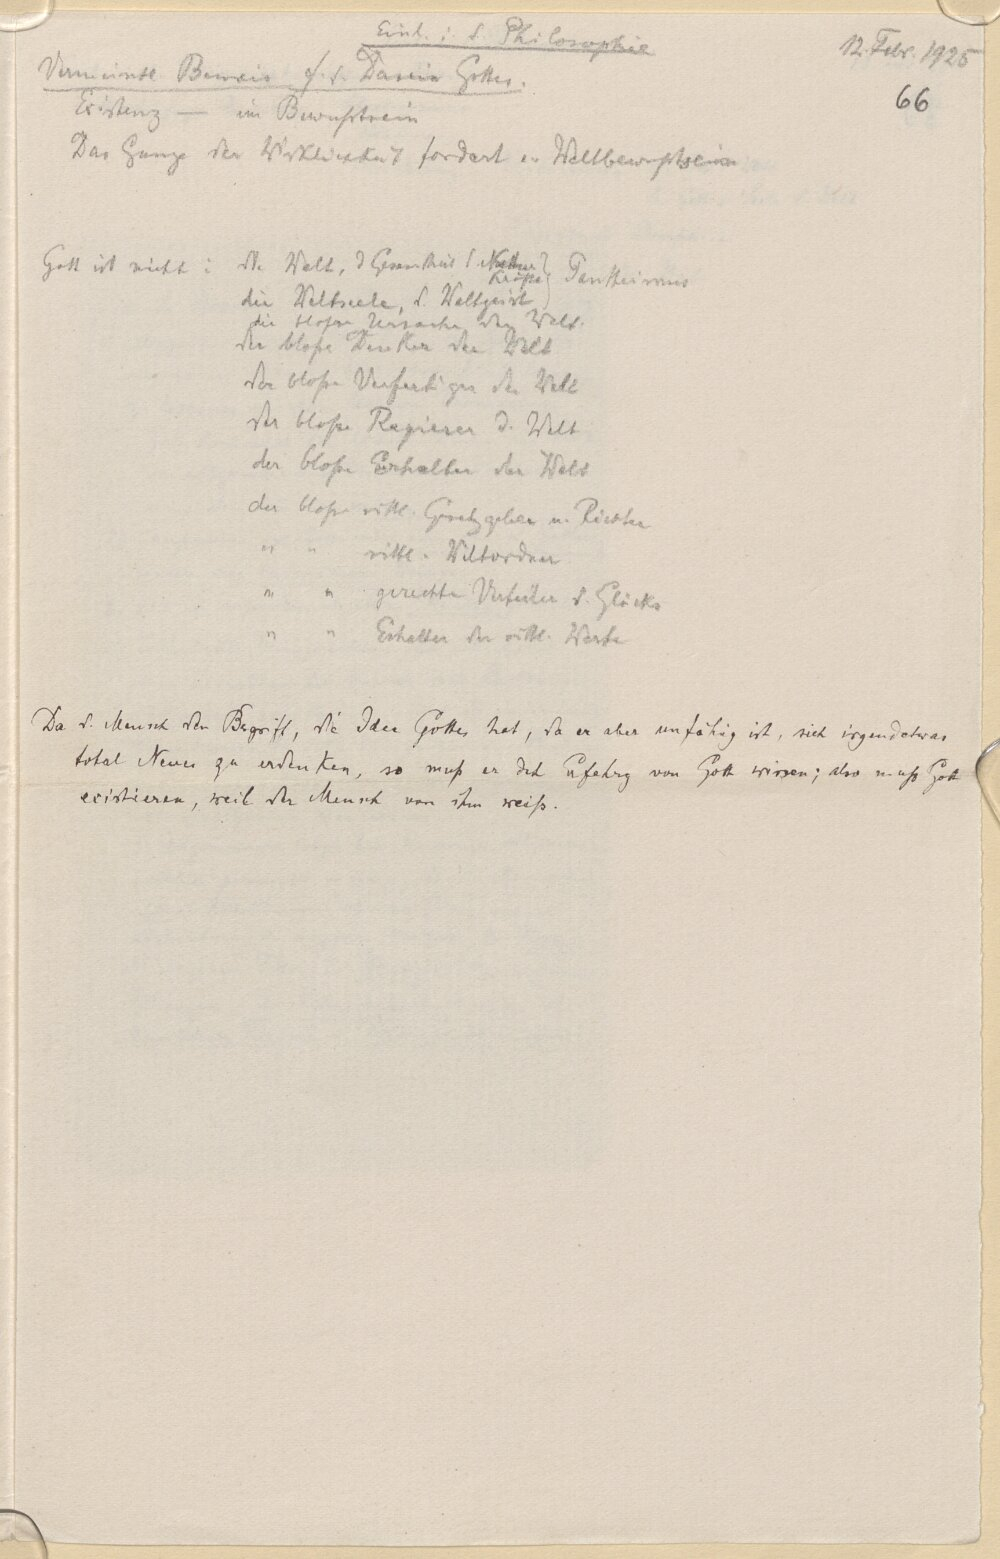 Einl. i. d. Philosophie
12. Febr. 1925
66
Vermeintl. Beweis f. d. Dasein Gottes.
Existenz — im Bewußtsein
Das Ganze der Wirklichkeit fordert e. Weltbewußtsein
Gott ist nicht: die Welt, d Gesamtheit d Naturkräfte } Pantheismus
die Weltseele, d. Weltgeist
die bloße Ursache der Welt.
der bloße Denker der Welt
der bloße Verfertiger der Welt
der bloße Regierer d. Welt
der bloße Erhalter der Welt
der bloße sittl. Gesetzgeber u. Richter
" " sittl. Weltordner
" " gerechte Verteiler d. Glücks
" " Erhalter der sittl. Werte
Da d. Mensch den Begriff, die Idee Gottes hat, da er aber unfähig ist, sich irgendetwas
total Neues zu erdenken, so muß er dch Erfahrg von Gott wissen; also muß Gott
existieren, weil der Mensch von ihm weiß.